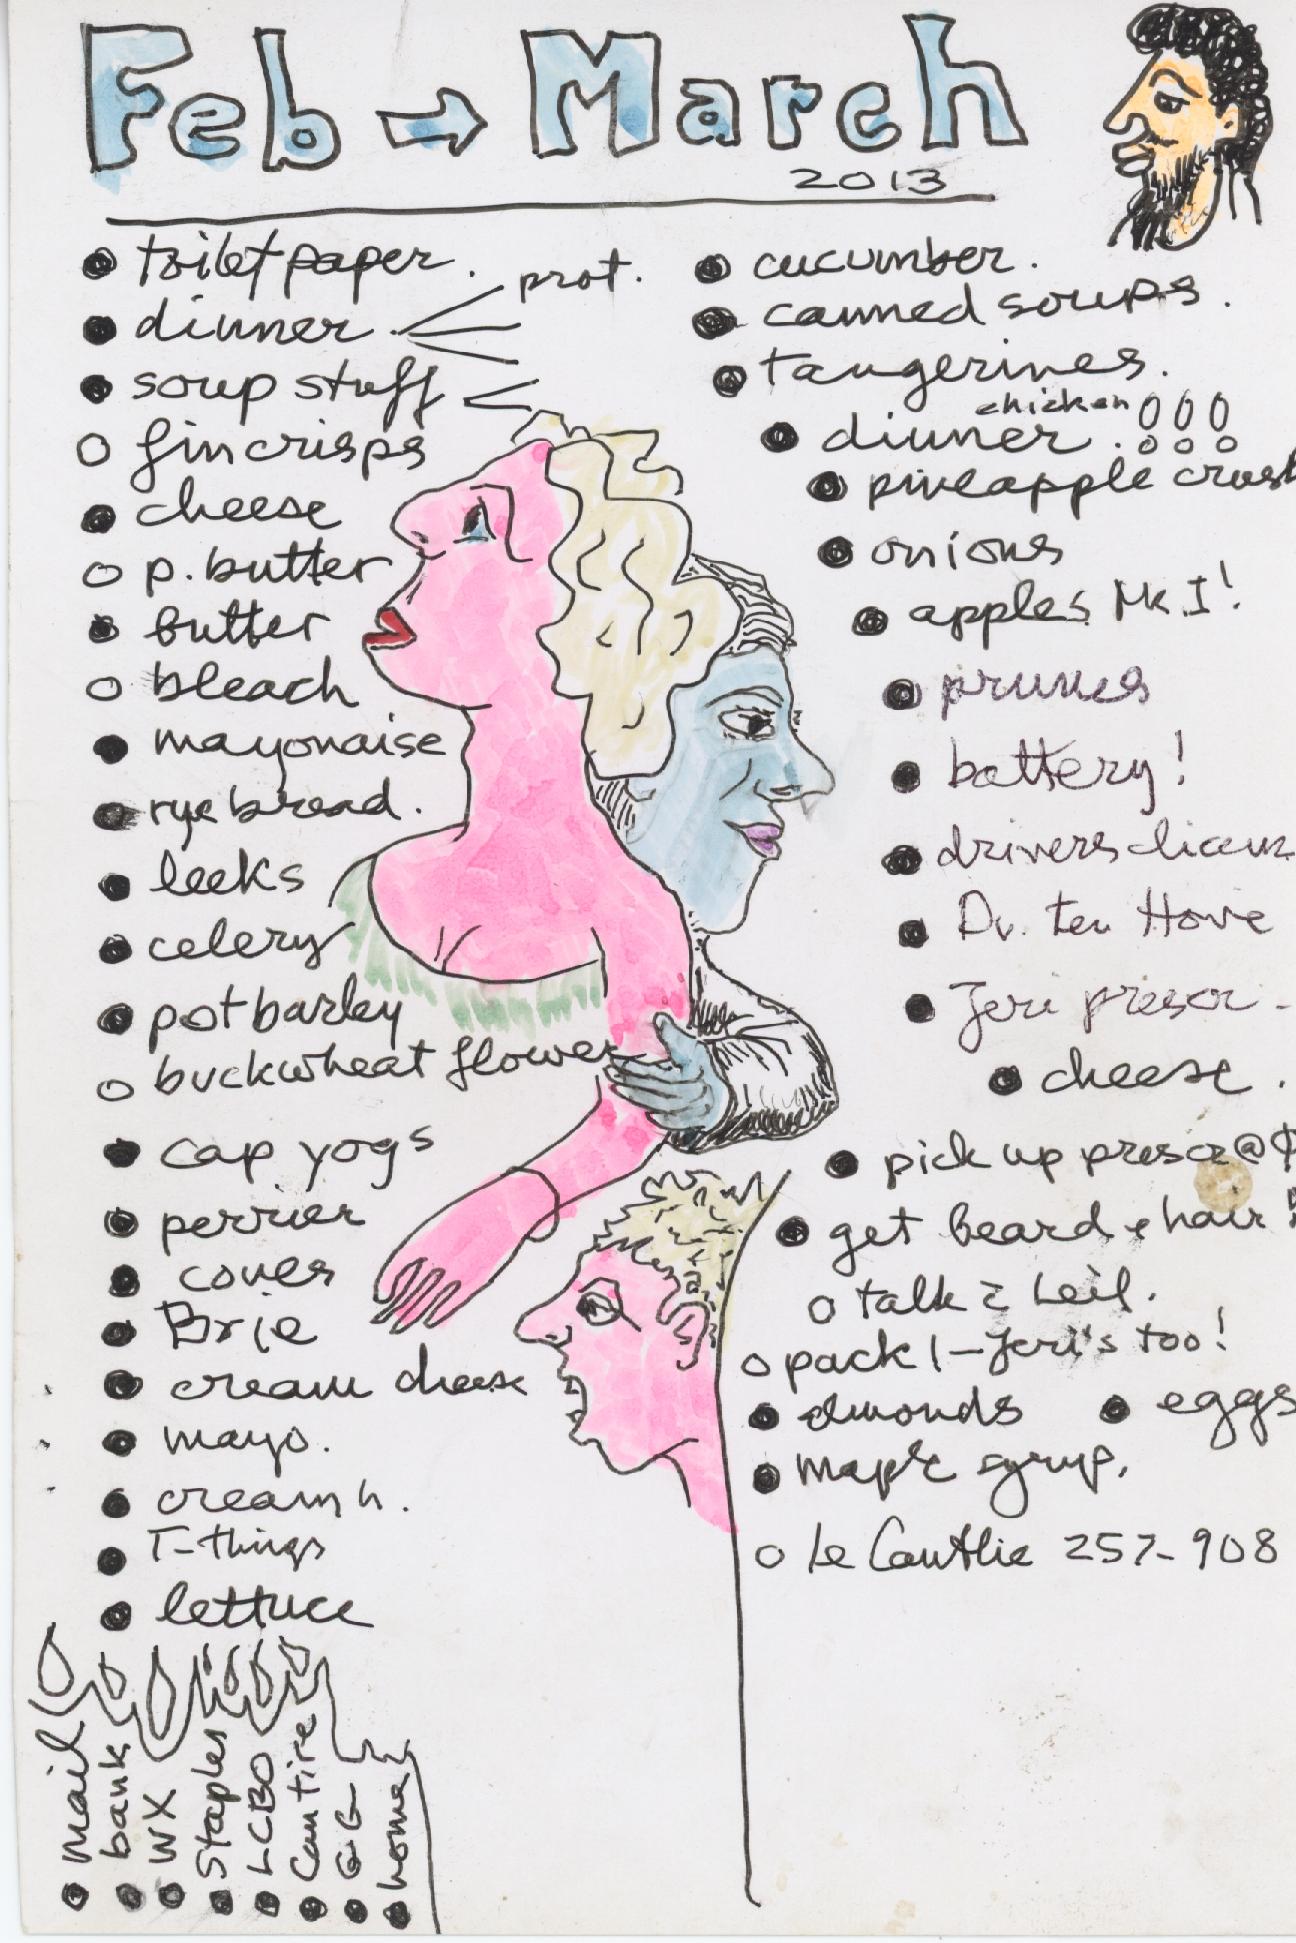 Feb → March
2013
toilet paper.
dinner. prot.
soup stuff
fin crisps
cheese
p. butter
butter
bleach
mayonaise
rye bread.
leeks
celery
pot barley
buckwheat flower
cap yogs
perrier
cover
Brie
cream cheese
mayo.
cream h.
T-things
lettuce
mail
bank
WX
Staples
LCBO
Can tire
GG
home
cucumber.
canned soups.
tangerines.
chicken
dinner.
pineapple crush
onions
apples Mk I!
prunes
battery!
drivers licens
Dr. ten Hove
Jeri prescr -
cheese.
pick up prescr @
get beard + hair
talk Leil.
pack! - Jeri's too!
almonds
eggs
maple syrup.
257-908